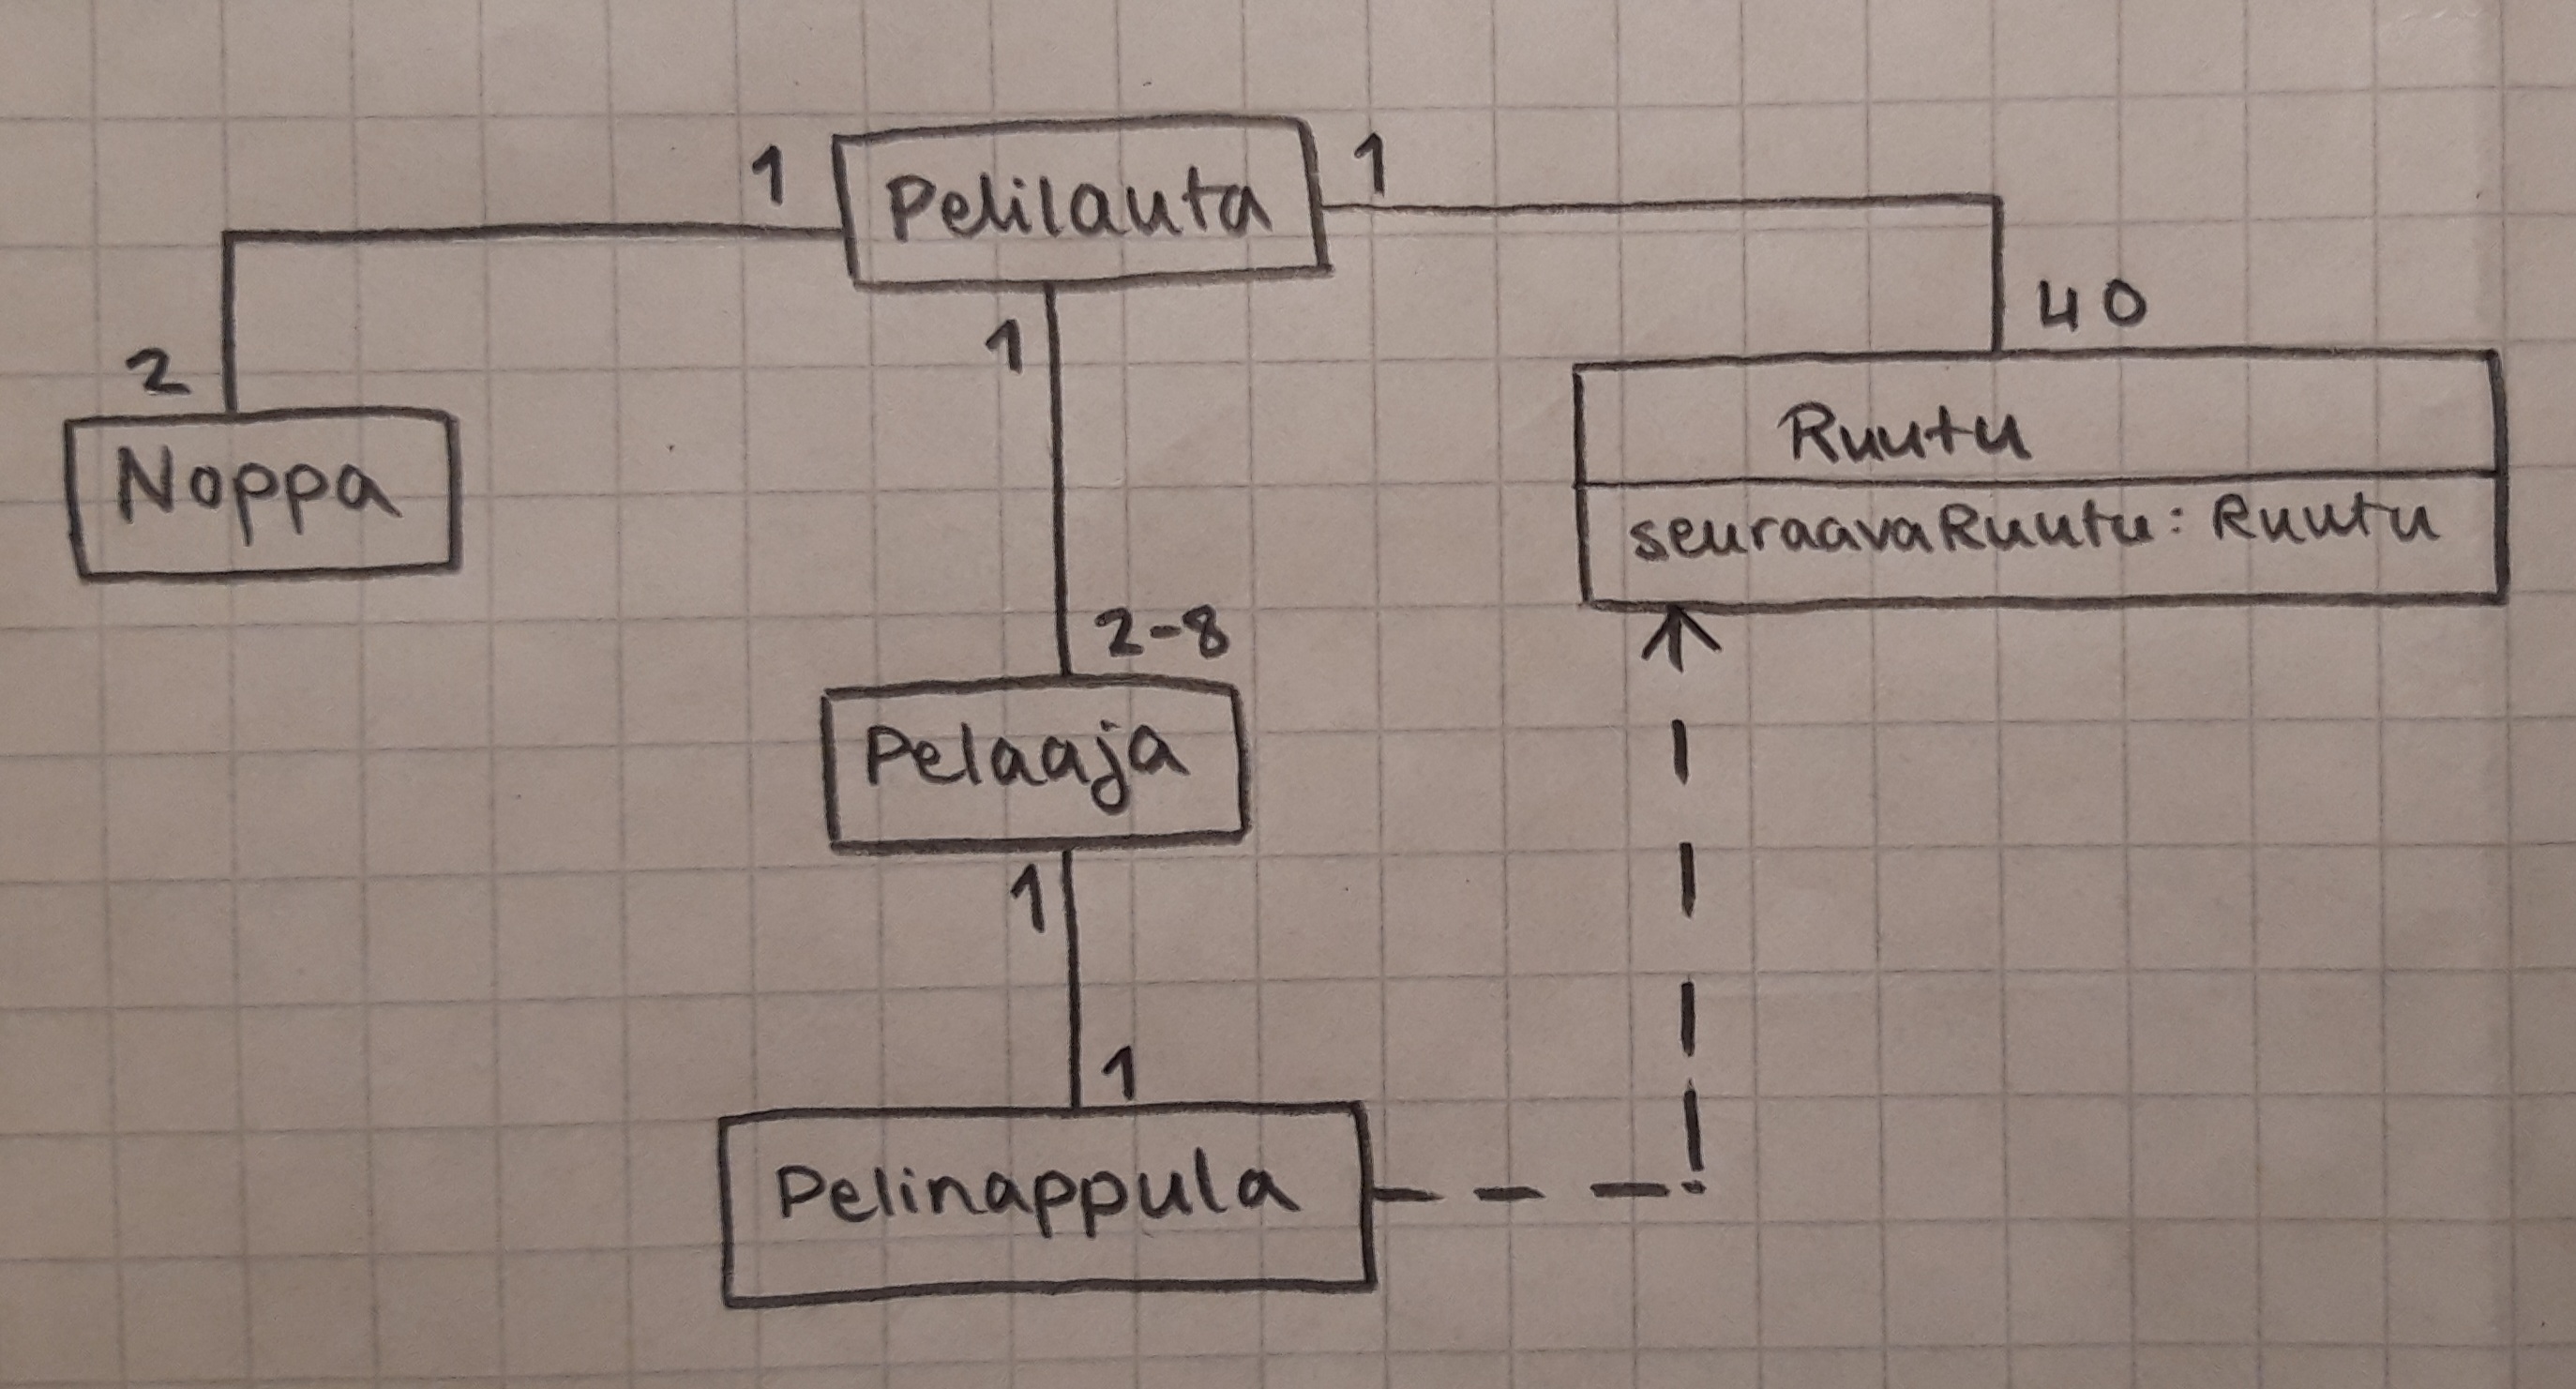 1
Pelilauta
1
40
1
2
Noppa
Ruutu
seuraavaRuutu: Ruutu
2-8
Pelaaja
1
1
Pelinappula